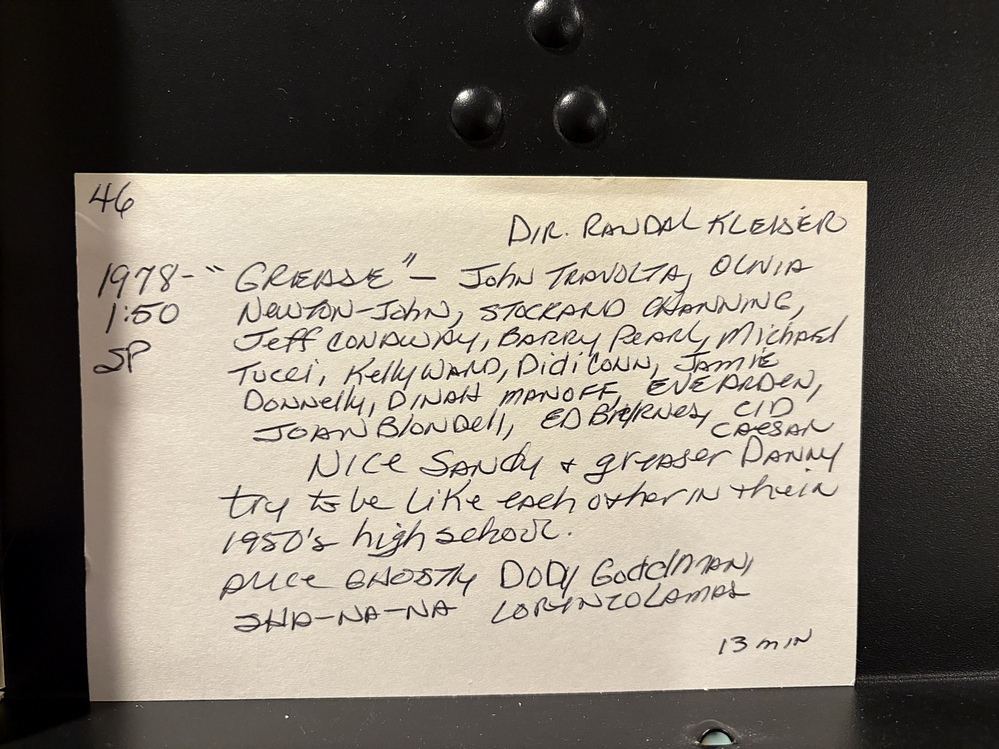 46
DIR. RANDAL KLEISER
1978 - "GREASE" - John TRAVOLTA, OLIVIA
1:50 NEWTON-John, STOCKARD CHANNING,
SP Jeff CONAWAY, BARRY PEARL, Michael
Tucci, Kelly WARD, Didi CONN, JAMIE
DONNElly, DINAH MANOFF, EVE ARDEN,
JOAN Blondell, ED BYRNES, CID
CAESAR
NICE SANdy & greaser DANNY
try to be like each other in their
1950's high school.
Alice GHOSTLY DODY GoodMAN,
SHA-NA-NA LORENZO LAMAS
13 min